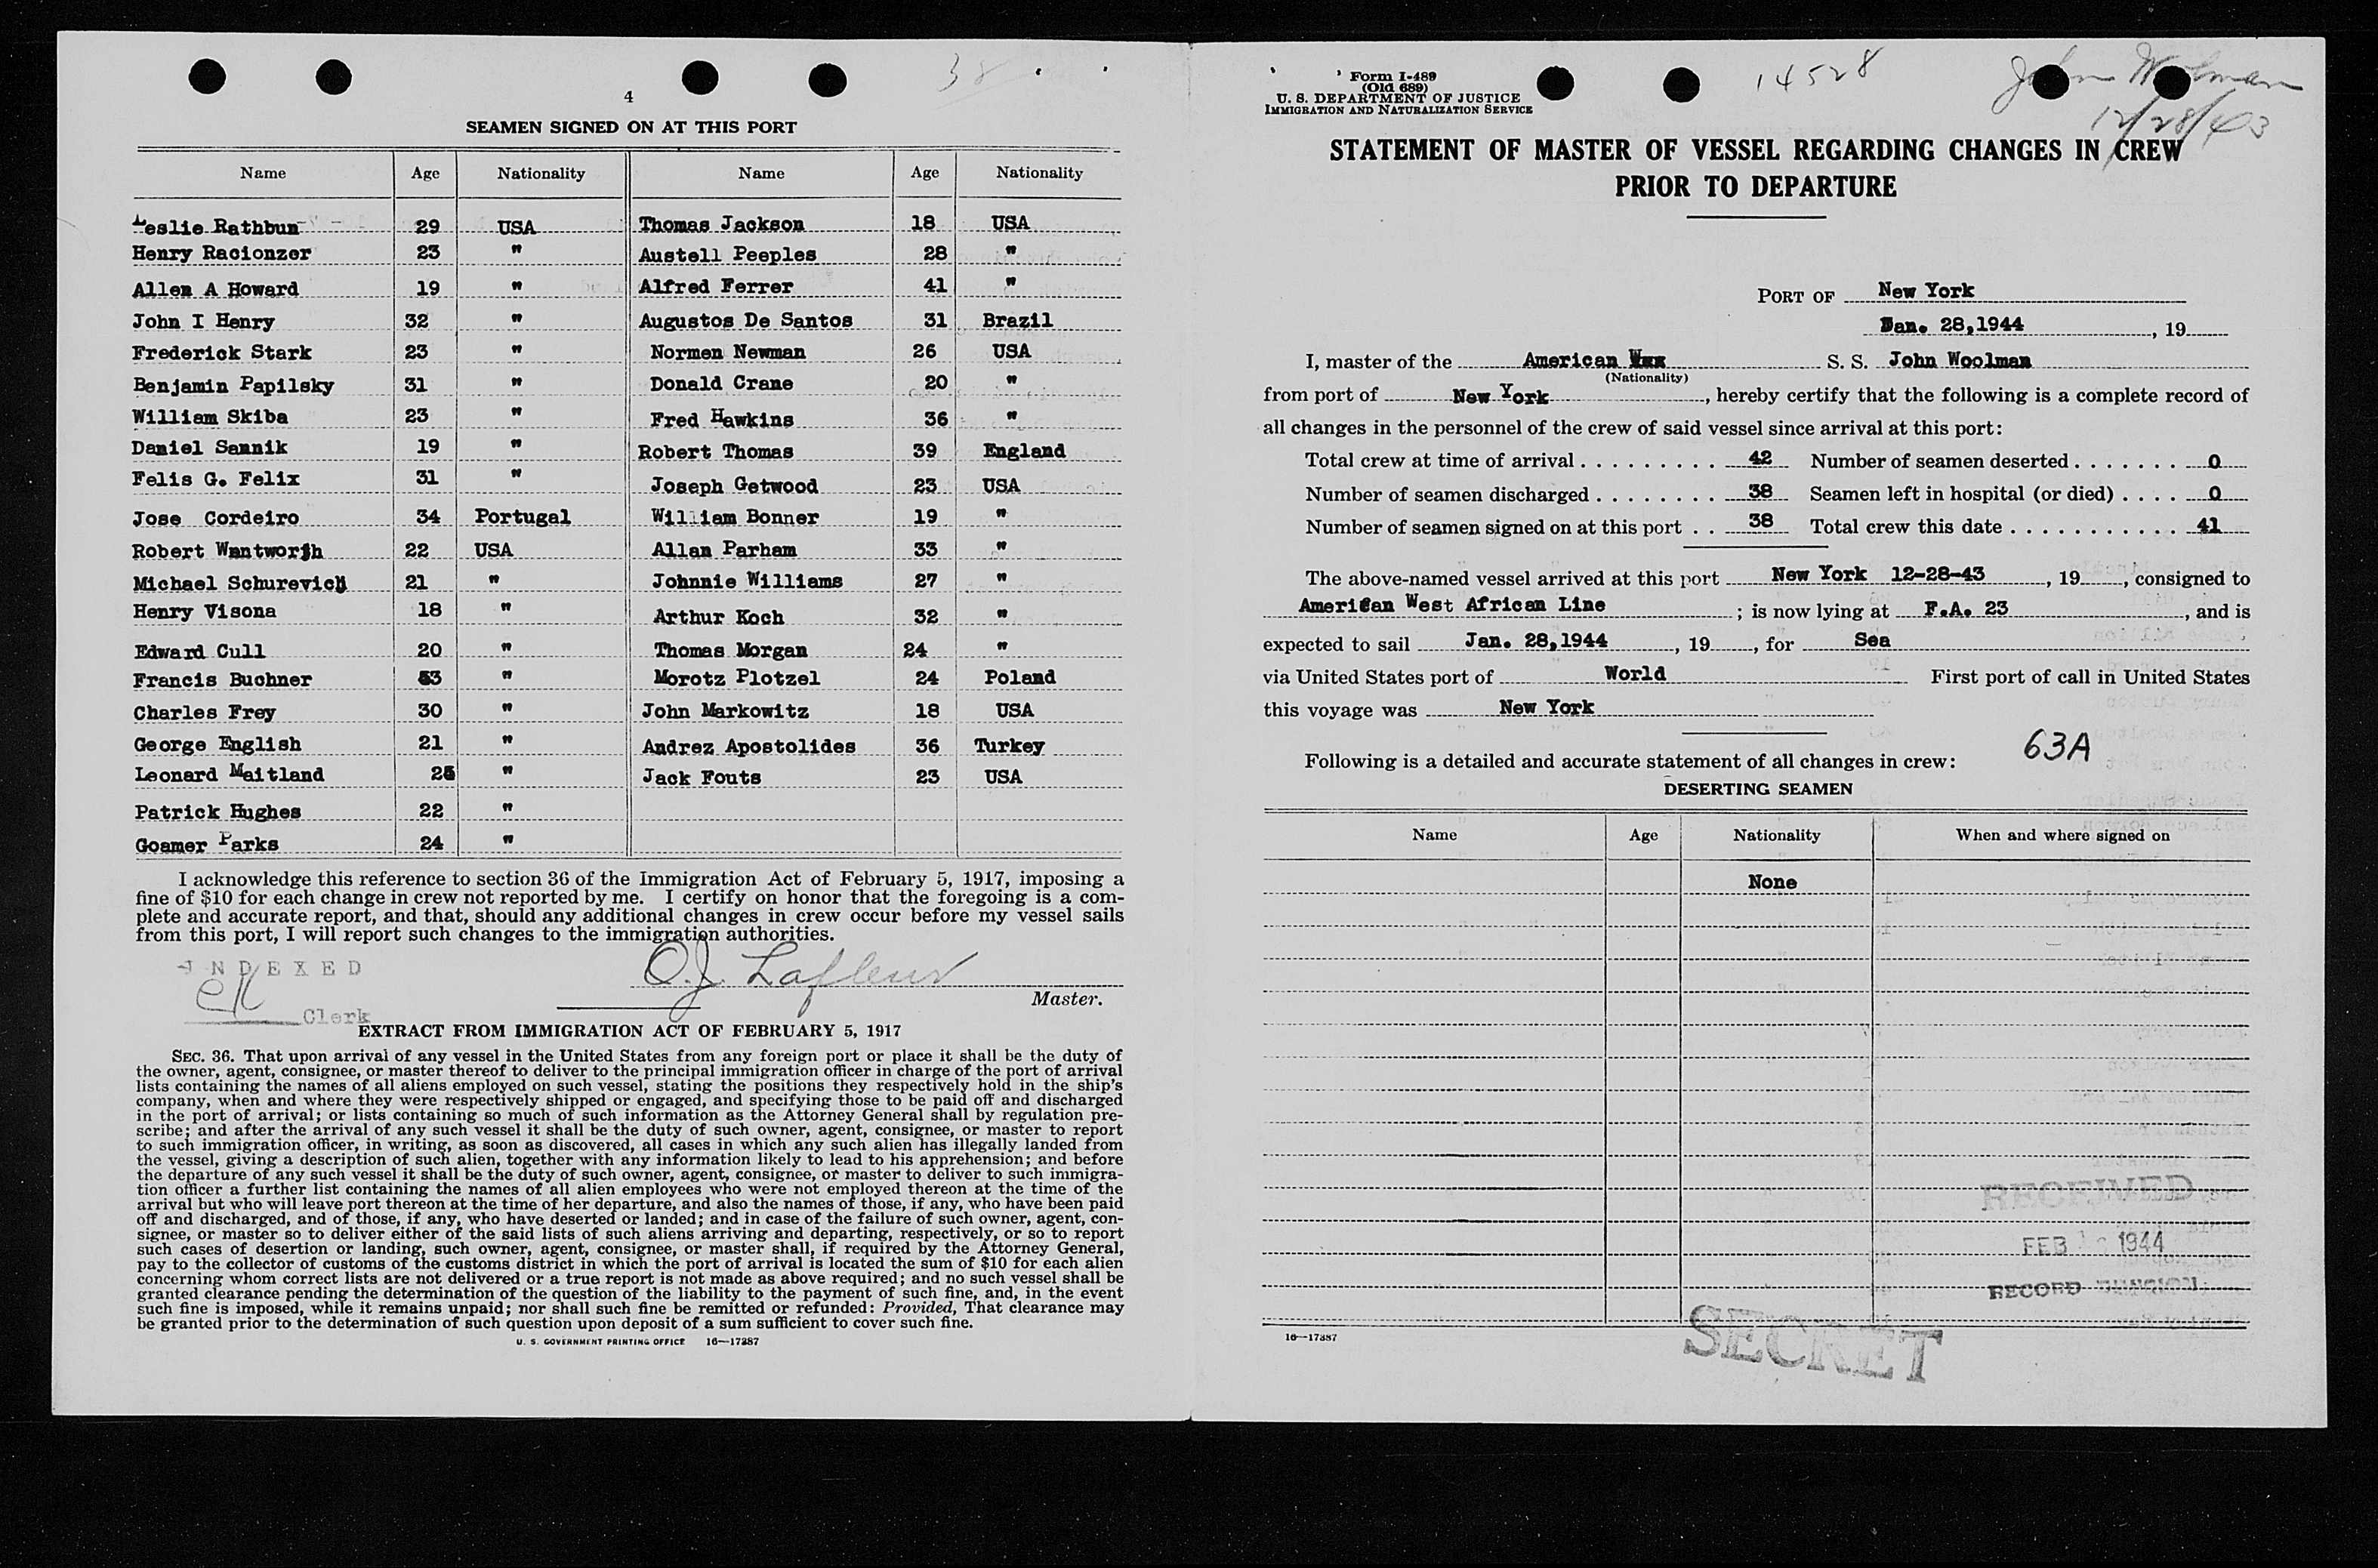 4
38
SEAMEN SIGNED ON AT THIS PORT
Name Age Nationality Name Age Nationality
Leslie Rathbun 29 USA Thomas Jackson 18 USA
Henry Racionzer 23 " Austell Peeples 28 "
Allen A Howard 19 " Alfred Ferrer 41 "
John I Henry 32 " Augustos De Santos 31 Brazil
Frederick Stark 23 " Normen Newman 26 USA
Benjamin Papilsky 31 " Donald Crane 20 "
William Skiba 23 " Fred Hawkins 36 "
Daniel Sannik 19 " Robert Thomas 39 England
Felis G. Felix 31 " Joseph Getwood 23 USA
Jose Cordeiro 34 Portugal William Bonner 19 "
Robert Wentworth 22 USA Allan Parham 33 "
Michael Schurevich 21 " Johnnie Williams 27 "
Henry Visona 18 " Arthur Koch 32 "
Edward Cull 20 " Thomas Morgan 24 "
Francis Buchner 53 " Morotz Plotzel 24 Poland
Charles Frey 30 " John Markowitz 18 USA
George English 21 " Andrez Apostolides 36 Turkey
Leonard Maitland 25 " Jack Fouts 23 USA
Patrick Hughes 22 "
Goamer Parks 24 "
I acknowledge this reference to section 36 of the Immigration Act of February 5, 1917, imposing a
fine of $10 for each change in crew not reported by me. I certify on honor that the foregoing is a com-
plete and accurate report, and that, should any additional changes in crew occur before my vessel sails
from this port, I will report such changes to the immigration authorities.
INDEXED
O.J. Lafleur
Master.
Clerk
EXTRACT FROM IMMIGRATION ACT OF FEBRUARY 5, 1917
SEC. 36. That upon arrival of any vessel in the United States from any foreign port or place it shall be the duty of
the owner, agent, consignee, or master thereof to deliver to the principal immigration officer in charge of the port of arrival
lists containing the names of all aliens employed on such vessel, stating the positions they respectively hold in the ship's
company, when and where they were respectively shipped or engaged, and specifying those to be paid off and discharged
in the port of arrival; or lists containing so much of such information as the Attorney General shall by regulation pre-
scribe; and after the arrival of any such vessel it shall be the duty of such owner, agent, consignee, or master to report
to such immigration officer, in writing, as soon as discovered, all cases in which any such alien has illegally landed from
the vessel, giving a description of such alien, together with any information likely to lead to his apprehension; and before
the departure of any such vessel it shall be the duty of such owner, agent, consignee, or master to deliver to such immigra-
tion officer a further list containing the names of all alien employees who were not employed thereon at the time of the
arrival but who will leave port thereon at the time of her departure, and also the names of those, if any, who have been paid
off and discharged, and of those, if any, who have deserted or landed; and in case of the failure of such owner, agent, con-
signee, or master so to deliver either of the said lists of such aliens arriving and departing, respectively, or so to report
such cases of desertion or landing, such owner, agent, consignee, or master shall, if required by the Attorney General,
pay to the collector of customs of the customs district in which the port of arrival is located the sum of $10 for each alien
concerning whom correct lists are not delivered or a true report is not made as above required; and no such vessel shall be
granted clearance pending the determination of the question of the liability to the payment of such fine, and, in the event
such fine is imposed, while it remains unpaid; nor shall such fine be remitted or refunded: Provided, That clearance may
be granted prior to the determination of such question upon deposit of a sum sufficient to cover such fine.
U. S. GOVERNMENT PRINTING OFFICE 16—17387
Form I-489
(Old 689)
U. S. DEPARTMENT OF JUSTICE
IMMIGRATION AND NATURALIZATION SERVICE
14528
John Wolman
12/28/43
STATEMENT OF MASTER OF VESSEL REGARDING CHANGES IN CREW
PRIOR TO DEPARTURE
PORT OF New York
Jan. 28,1944, 19
I, master of the American S. S. John Woolman
(Nationality)
from port of New York, hereby certify that the following is a complete record of
all changes in the personnel of the crew of said vessel since arrival at this port:
Total crew at time of arrival 42 Number of seamen deserted 0
Number of seamen discharged 38 Seamen left in hospital (or died) 0
Number of seamen signed on at this port 38 Total crew this date 41
The above-named vessel arrived at this port New York 12-28-43, 19, consigned to
American West African Line; is now lying at F.A. 23, and is
expected to sail Jan. 28,1944, 19, for Sea
via United States port of World First port of call in United States
this voyage was New York
63A
Following is a detailed and accurate statement of all changes in crew:
DESERTING SEAMEN
Name Age Nationality When and where signed on
None
RECEIVED
FEB 1944
RECORD DIVISION
16—17387
SECRET